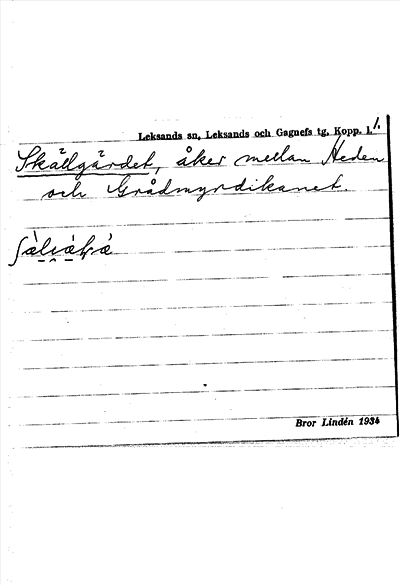 Leksands sn, Leksands och Gagnefs tg, Kopp. l.
Skällgärdet, åker mellan Heden
och Grådmyrdikanet.
Bror Lindén 1934